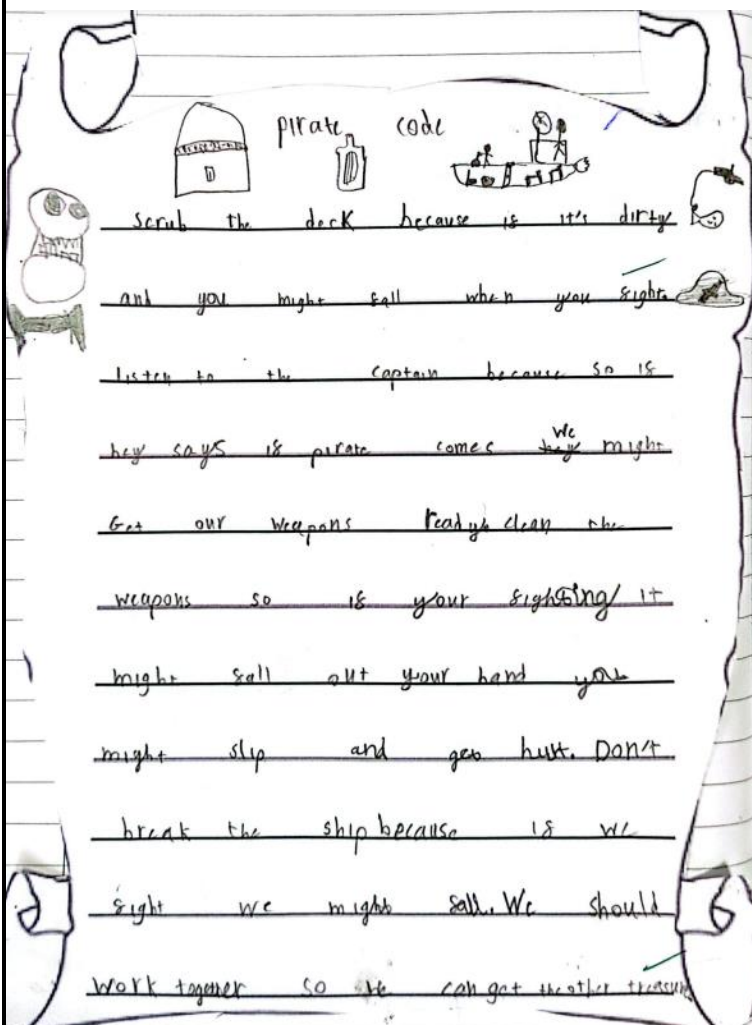 pirate code
scrub the deck because if it's dirty
and you might fall when you fight.
listen to the captain because so if
hey says if pirate comes we might
Get our weapons ready. clean the
weapons so if your fighting it
might fall out your hand you
might slip and get hurt. Don't
break the ship because if we
fight we might fall. We should
work together so we can get the other treasure.